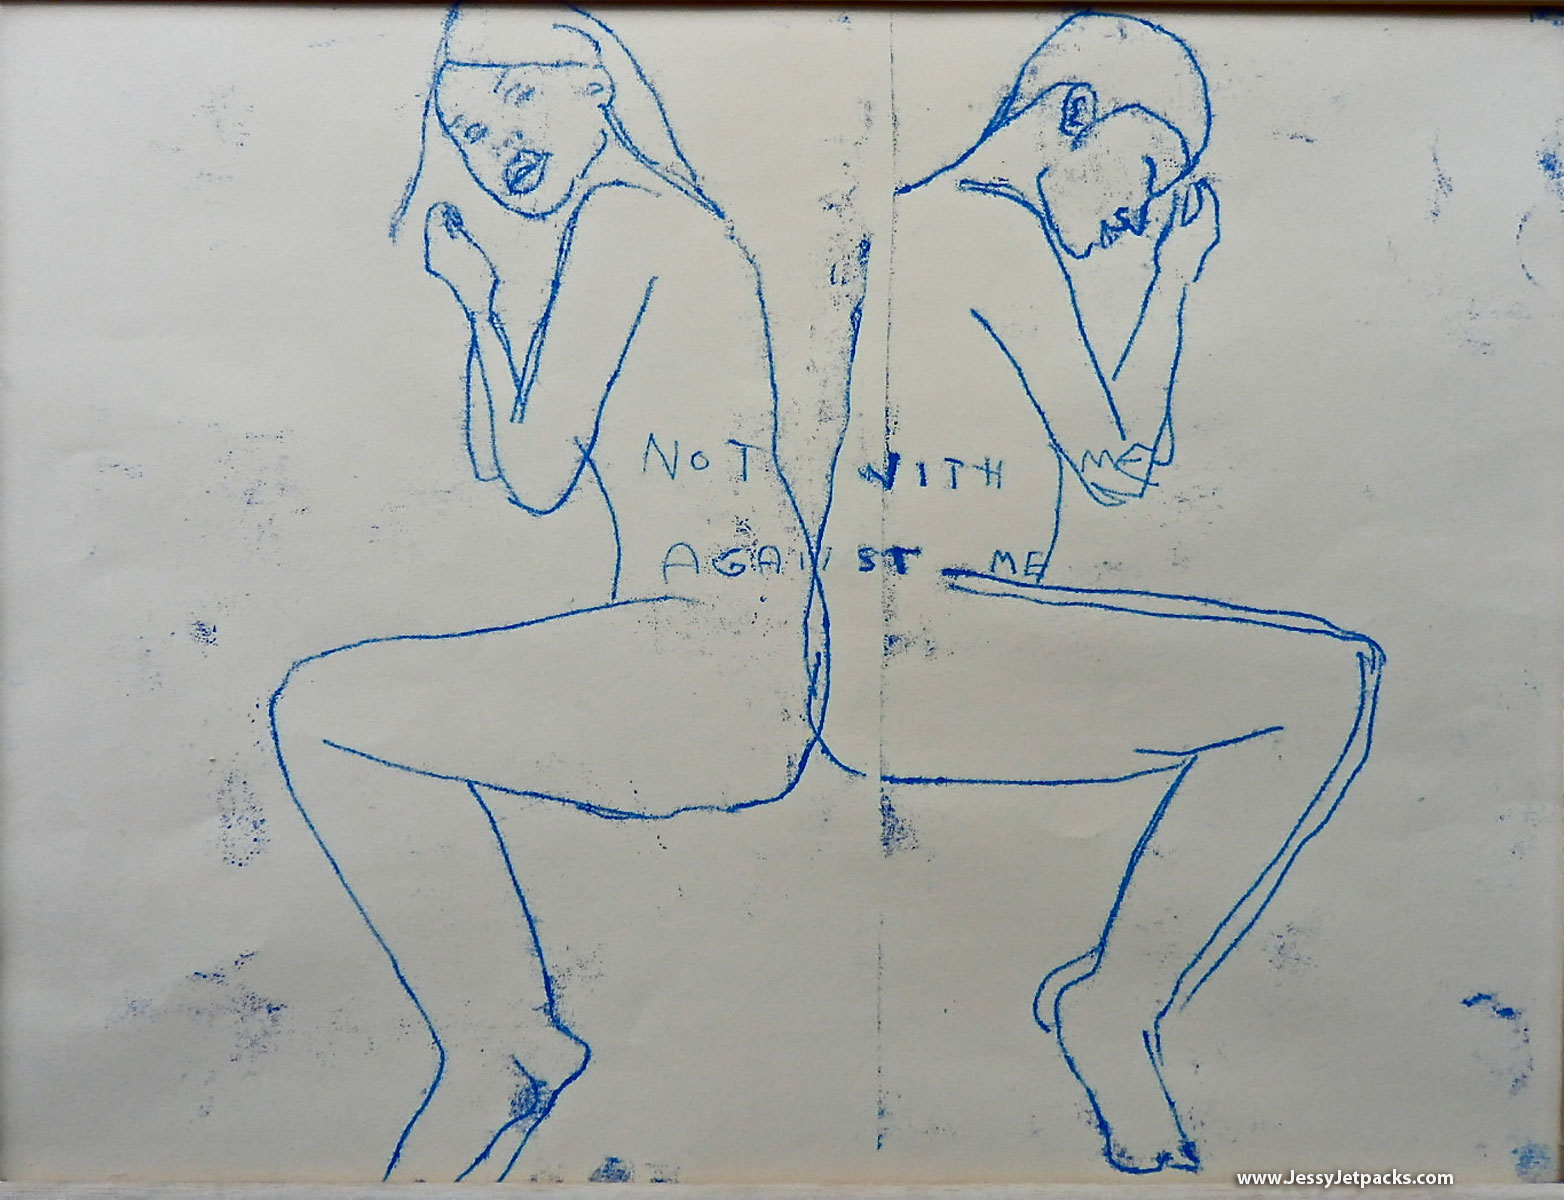 NOT WITH ME
AGAINST ME
www.JessyJetpacks.com